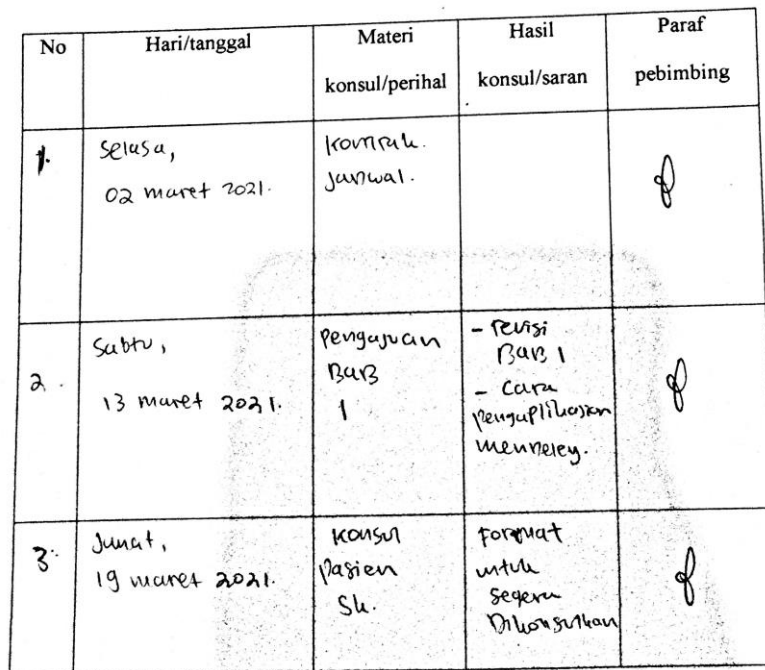 No Hari/tanggal Materi konsul/perihal Hasil konsul/saran Paraf pebimbing
1. Selasa,
02 maret 2021.
Kontrak
Jadwal.
2. Sabtu,
13 maret 2021.
Pengajuan
BAB
1
- revisi
BAB 1
- Cara
pengaplikasian
menneley.
3. Jumat,
19 maret 2021.
Konsul
Pasien
Format
untuk
segera
Dikonsulkan